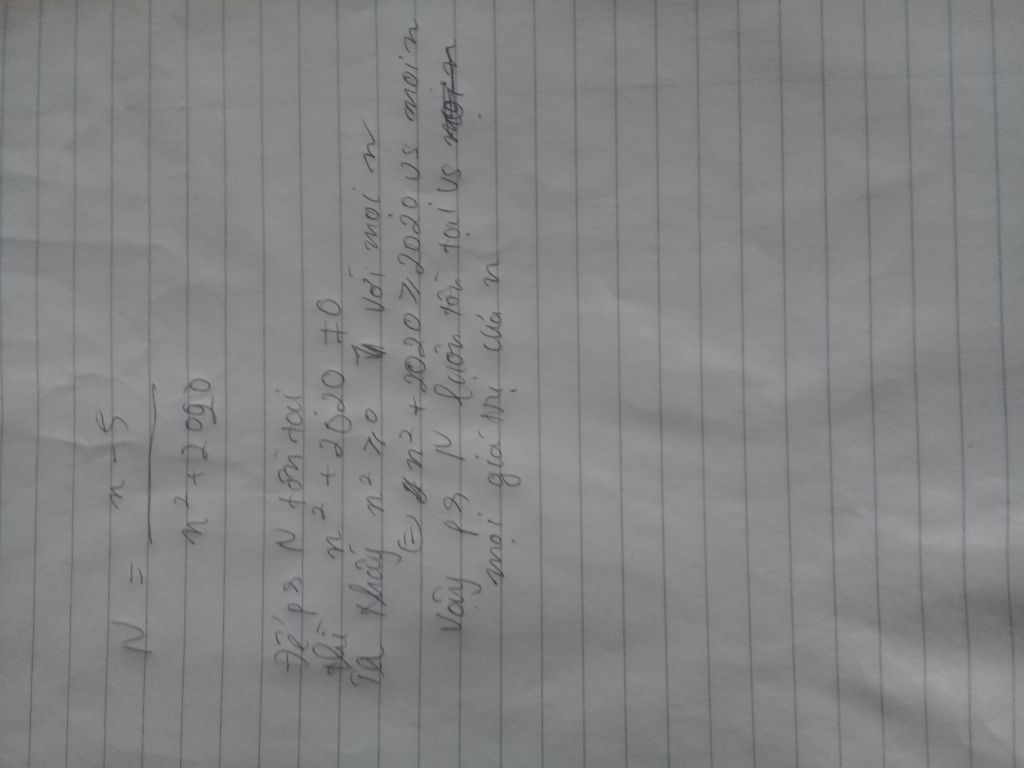 N = n - 5
n² + 2020
Để ps N tồn tại
thì n² + 2020 ≠ 0
Ta thấy n² ⩾ 0 với mọi n
(=) n² + 2020 ⩾ 2020 vs mọi n
Vậy ps N luôn tồn tại vs
mọi giá trị của n